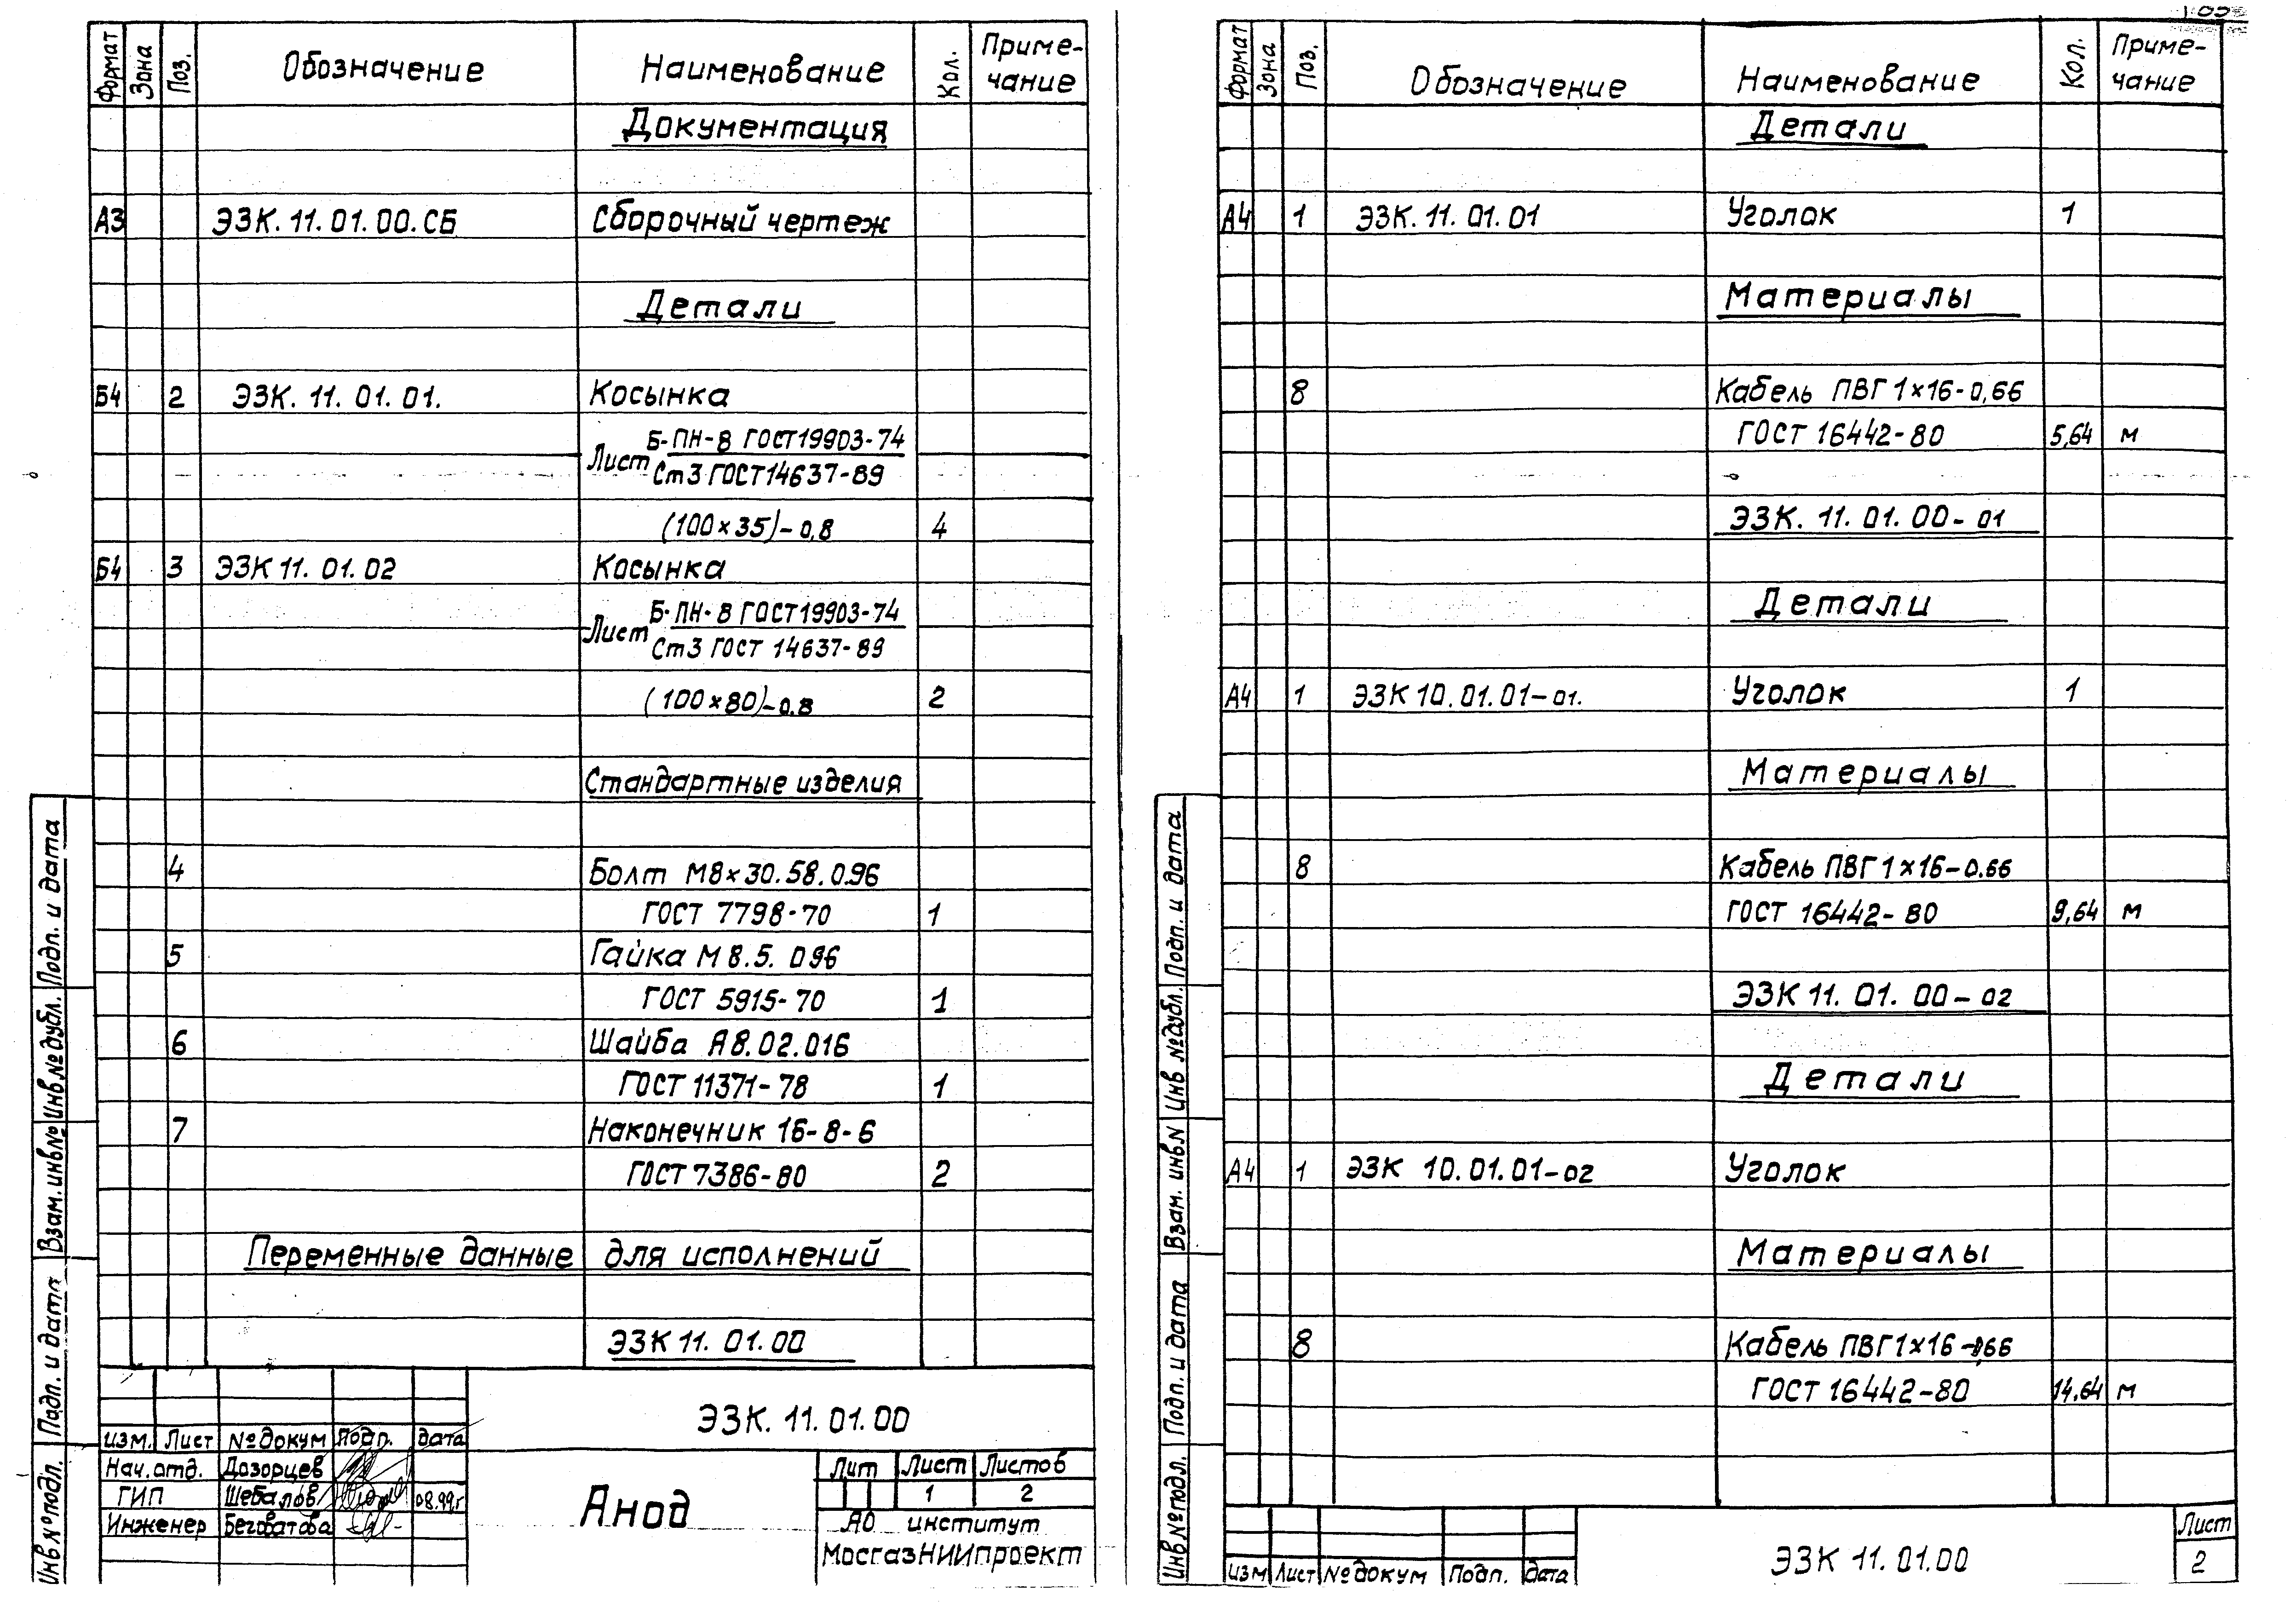 Формат Зона Поз. Обозначение Наименование Кол. Приме-
чание
Документация
А3 ЭЗК. 11. 01. 00. СБ Сборочный чертеж
Детали
Б4 2 ЭЗК. 11. 01. 01. Косынка
Б-ПН-8 ГОСТ19903-74
Лист
Ст3 ГОСТ14637-89
(100×35)-0,8 4
Б4 3 ЭЗК 11. 01. 02 Косынка
Б-ПН-8 ГОСТ19903-74
Лист
Ст3 ГОСТ 14637-89
(100×80)-0.8 2
Стандартные изделия
4 Болт М8×30.58.096
ГОСТ 7798-70 1
5 Гайка М8.5. 096
ГОСТ 5915-70 1
6 Шайба А8.02.016
ГОСТ 11371-78 1
7 Наконечник 16-8-6
ГОСТ 7386-80 2
Переменные данные для исполнений
ЭЗК 11. 01. 00
ЭЗК. 11. 01. 00
изм. Лист №докум Подп. дата
Нач.отд. Дозорцев
ГИП Шебалов 08.99г
Инженер Беговатова
Анод
Лит Лист Листов
1 2
АО институт
МосгазНИИпроект
Подп. и дата
Инв№дубл.
Взам.инв№
Подп. и дата
Инв№подл.
Формат Зона Поз. Обозначение Наименование Кол. Приме-
чание
Детали
А4 1 ЭЗК. 11. 01. 01 Уголок 1
Материалы
8 Кабель ПВГ 1×16-0,66
ГОСТ 16442-80 5,64 м
ЭЗК. 11. 01. 00-01
Детали
А4 1 ЭЗК 10. 01. 01-01. Уголок 1
Материалы
8 Кабель ПВГ 1×16-0.66
ГОСТ 16442-80 9,64 м
ЭЗК 11. 01. 00-02
Детали
А4 1 ЭЗК 10. 01. 01-02 Уголок
Материалы
8 Кабель ПВГ 1×16-0,66
ГОСТ 16442-80 14.64 м
изм Лист №докум Подп. дата
ЭЗК 11. 01. 00
Лист
2
Подп. и дата
Инв №дубл.
Взам. инв.N
Подп. и дата
Инв№подл.